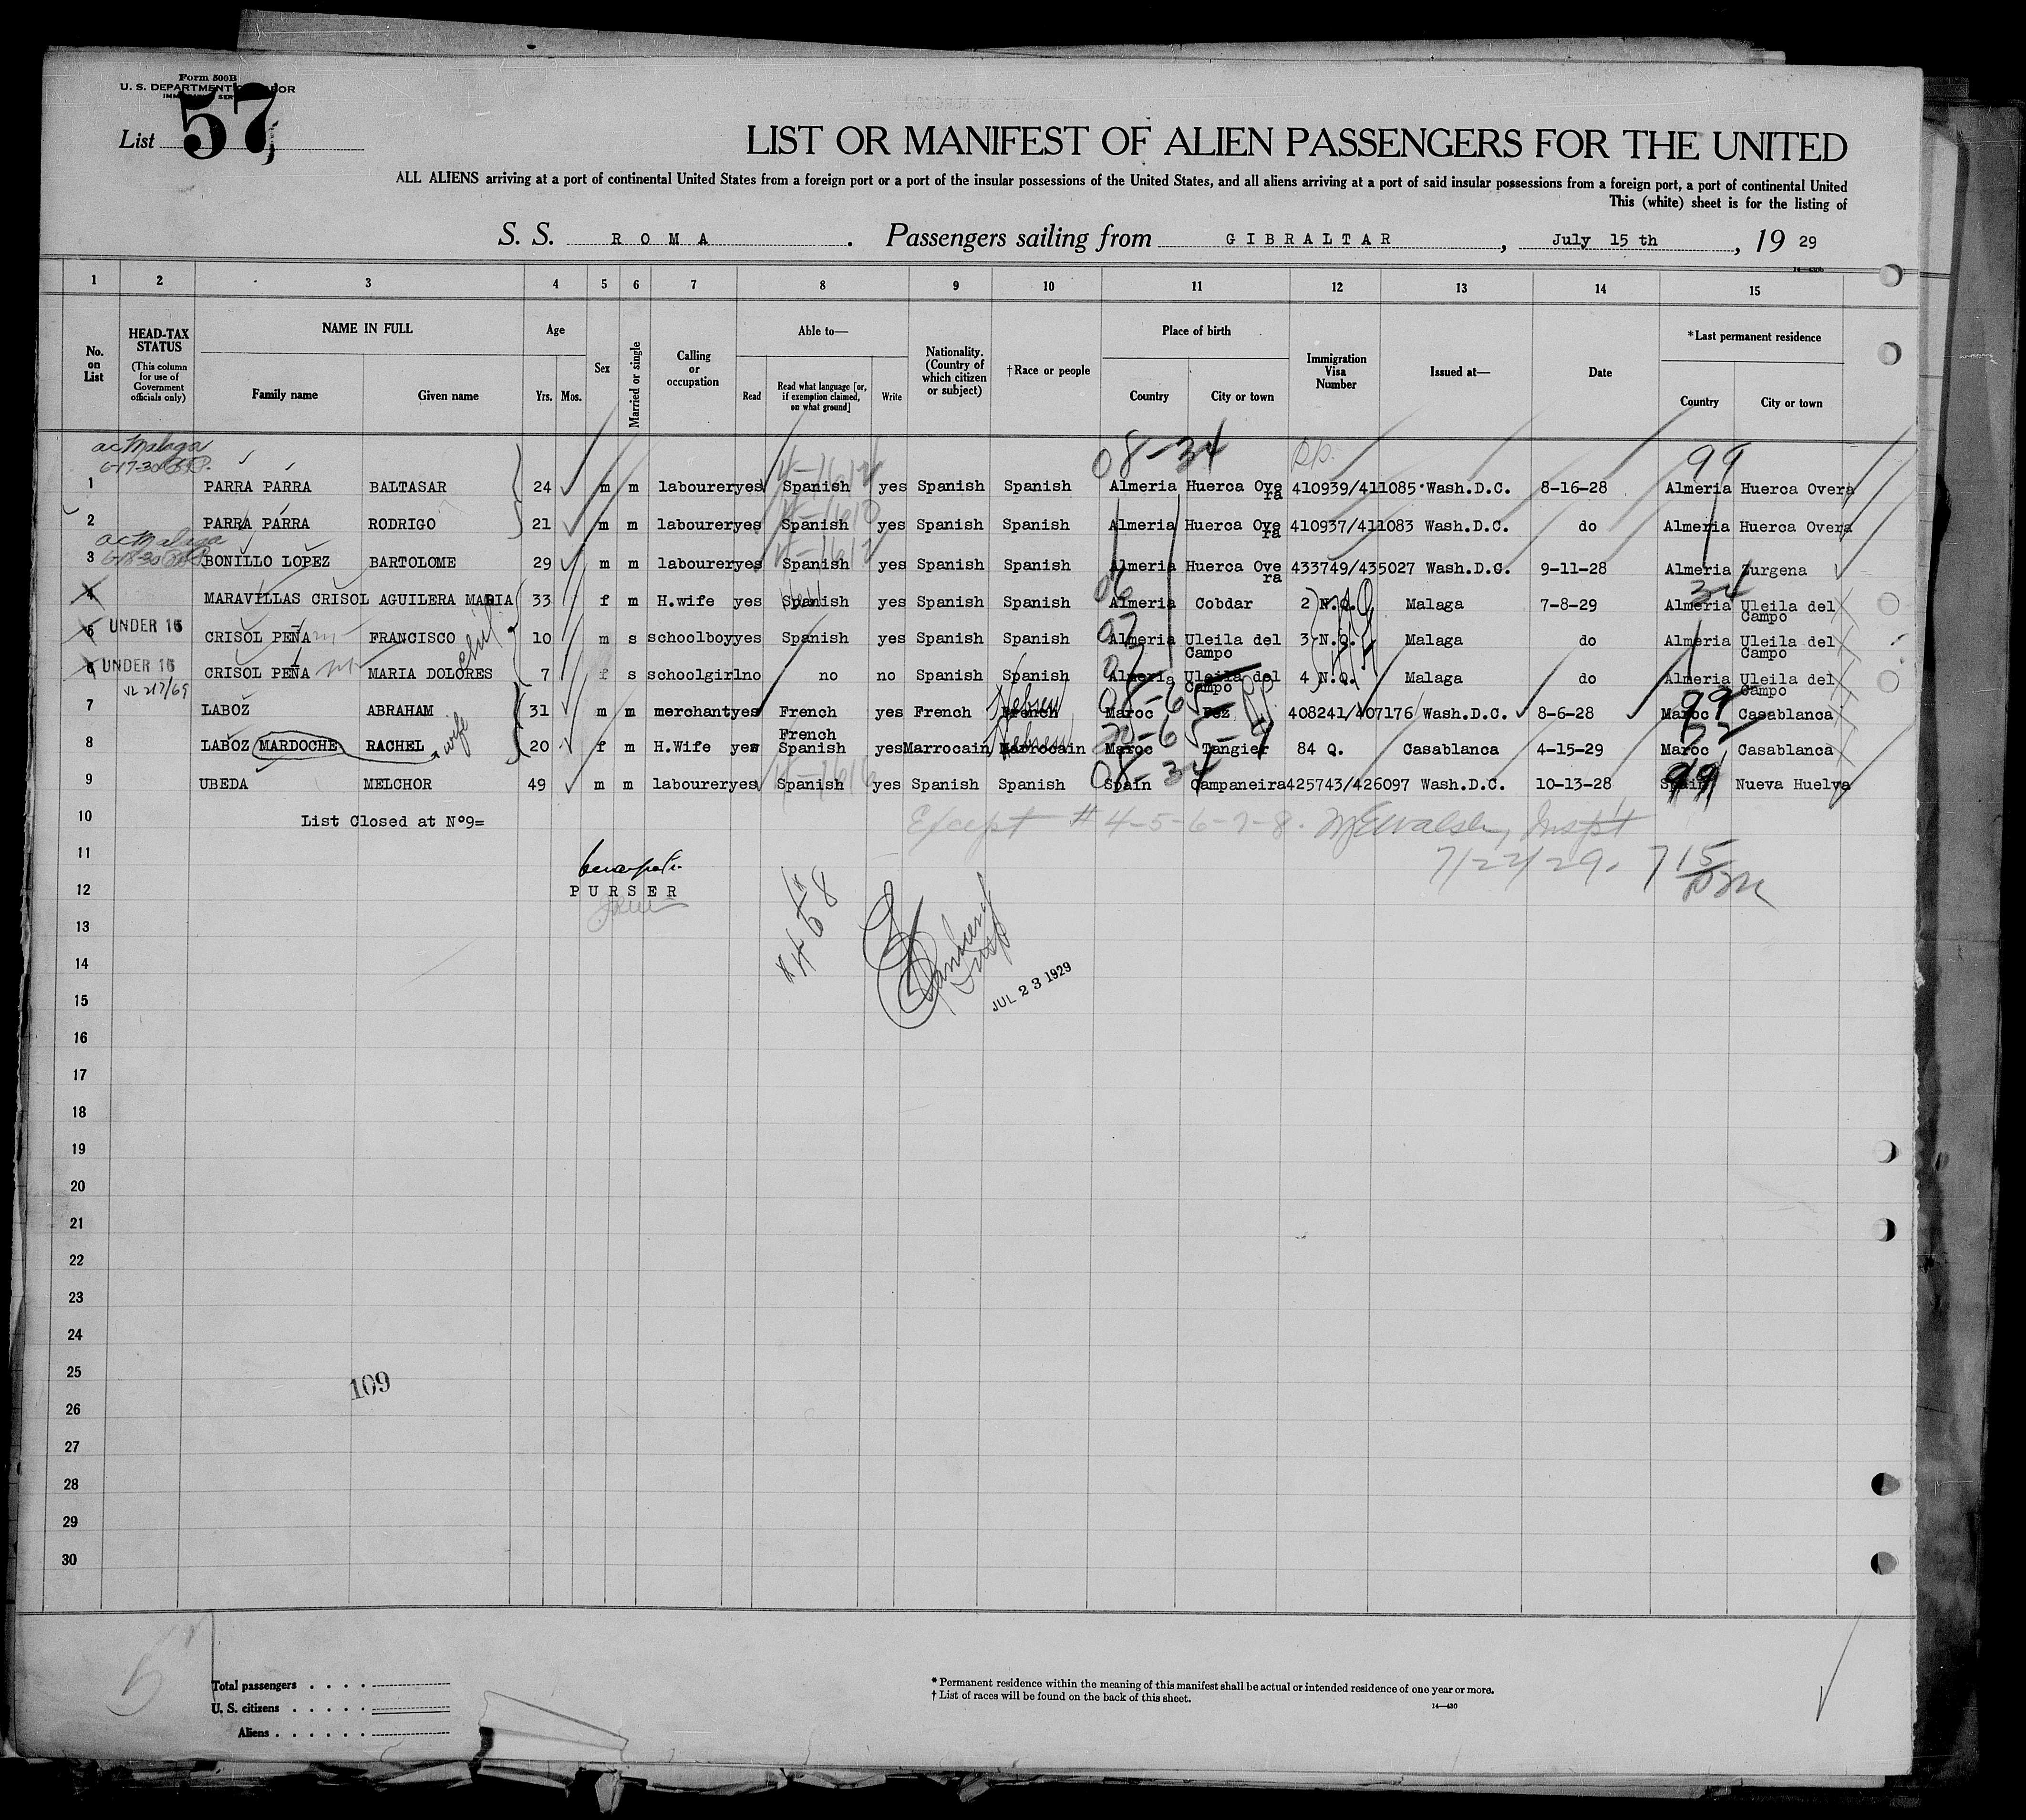 Form 500B
U. S. DEPARTMENT OF LABOR
List 57
LIST OR MANIFEST OF ALIEN PASSENGERS FOR THE UNITED
ALL ALIENS arriving at a port of continental United States from a foreign port or a port of the insular possessions of the United States, and all aliens arriving at a port of said insular possessions from a foreign port, a port of continental United
This (white) sheet is for the listing of
S. S. ROMA. Passengers sailing from GIBRALTAR, July 15 th, 19 29
1 2 3 4 5 6 7 8 9 10 11 12 13 14 15
No. on List
HEAD-TAX STATUS
(This column for use of Government officials only)
NAME IN FULL
Family name Given name
Age
Yrs. Mos.
Sex
Married or single
Calling or occupation
Able to—
Read
Read what language [or, if exemption claimed, on what ground]
Write
Nationality. (Country of which citizen or subject)
†Race or people
Place of birth
Country City or town
Immigration Visa Number
Issued at—
Date
*Last permanent residence
Country City or town
ac Malaga 08-34 99
6-17-30
1 PARRA PARRA BALTASAR 24 m m labourer yes Spanish yes Spanish Spanish Almeria Huerca Overa 410939/411085 Wash.D.C. 8-16-28 Almeria Huerca Overa
2 PARRA PARRA RODRIGO 21 m m labourer yes Spanish yes Spanish Spanish Almeria Huerca Overa 410937/411083 Wash.D.C. do Almeria Huerca Overa
ac Malaga
3 BONILLO LOPEZ BARTOLOME 29 m m labourer yes Spanish yes Spanish Spanish Almeria Huerca Overa 433749/435027 Wash.D.C. 9-11-28 Almeria Zurgena
4 MARAVILLAS CRISOL AGUILERA MARIA 33 f m H.wife yes Spanish yes Spanish Spanish Almeria Cobdar 2 N.Q. Malaga 7-8-29 Almeria Uleila del Campo
5 UNDER 16 CRISOL PEÑA FRANCISCO 10 m s schoolboy yes Spanish yes Spanish Spanish Almeria Uleila del Campo 3 N.Q. Malaga do Almeria Uleila del Campo
6 UNDER 16 CRISOL PEÑA MARIA DOLORES 7 f s schoolgirl no no no Spanish Spanish Almeria Uleila del Campo 4 N.Q. Malaga do Almeria Uleila del Campo
7 LABOZ ABRAHAM 31 m m merchant yes French yes French French Hebrew Maroc Fez 408241/407176 Wash.D.C. 8-6-28 Maroc Casablanca
8 LABOZ MARDOCHE RACHEL wife 20 f m H.Wife yes French Spanish yes Marrocain Marrocain Hebrew Maroc Tangier 84 Q. Casablanca 4-15-29 Maroc Casablanca
9 UBEDA MELCHOR 49 m m labourer yes Spanish yes Spanish Spanish Spain Campaneira 425743/426097 Wash.D.C. 10-13-28 Spain Nueva Huelva
10 List Closed at Nº9= Except # 4-5-6-7-8.
11 7/22/29. 7 15 pm
12 PURSER
13
14
JUL 23 1929
15
16
17
18
19
20
21
22
23
24
25
109
26
27
28
29
30
Total passengers . . . .
U. S. citizens . . . . .
Aliens . . . . . .
* Permanent residence within the meaning of this manifest shall be actual or intended residence of one year or more.
† List of races will be found on the back of this sheet.
14—430